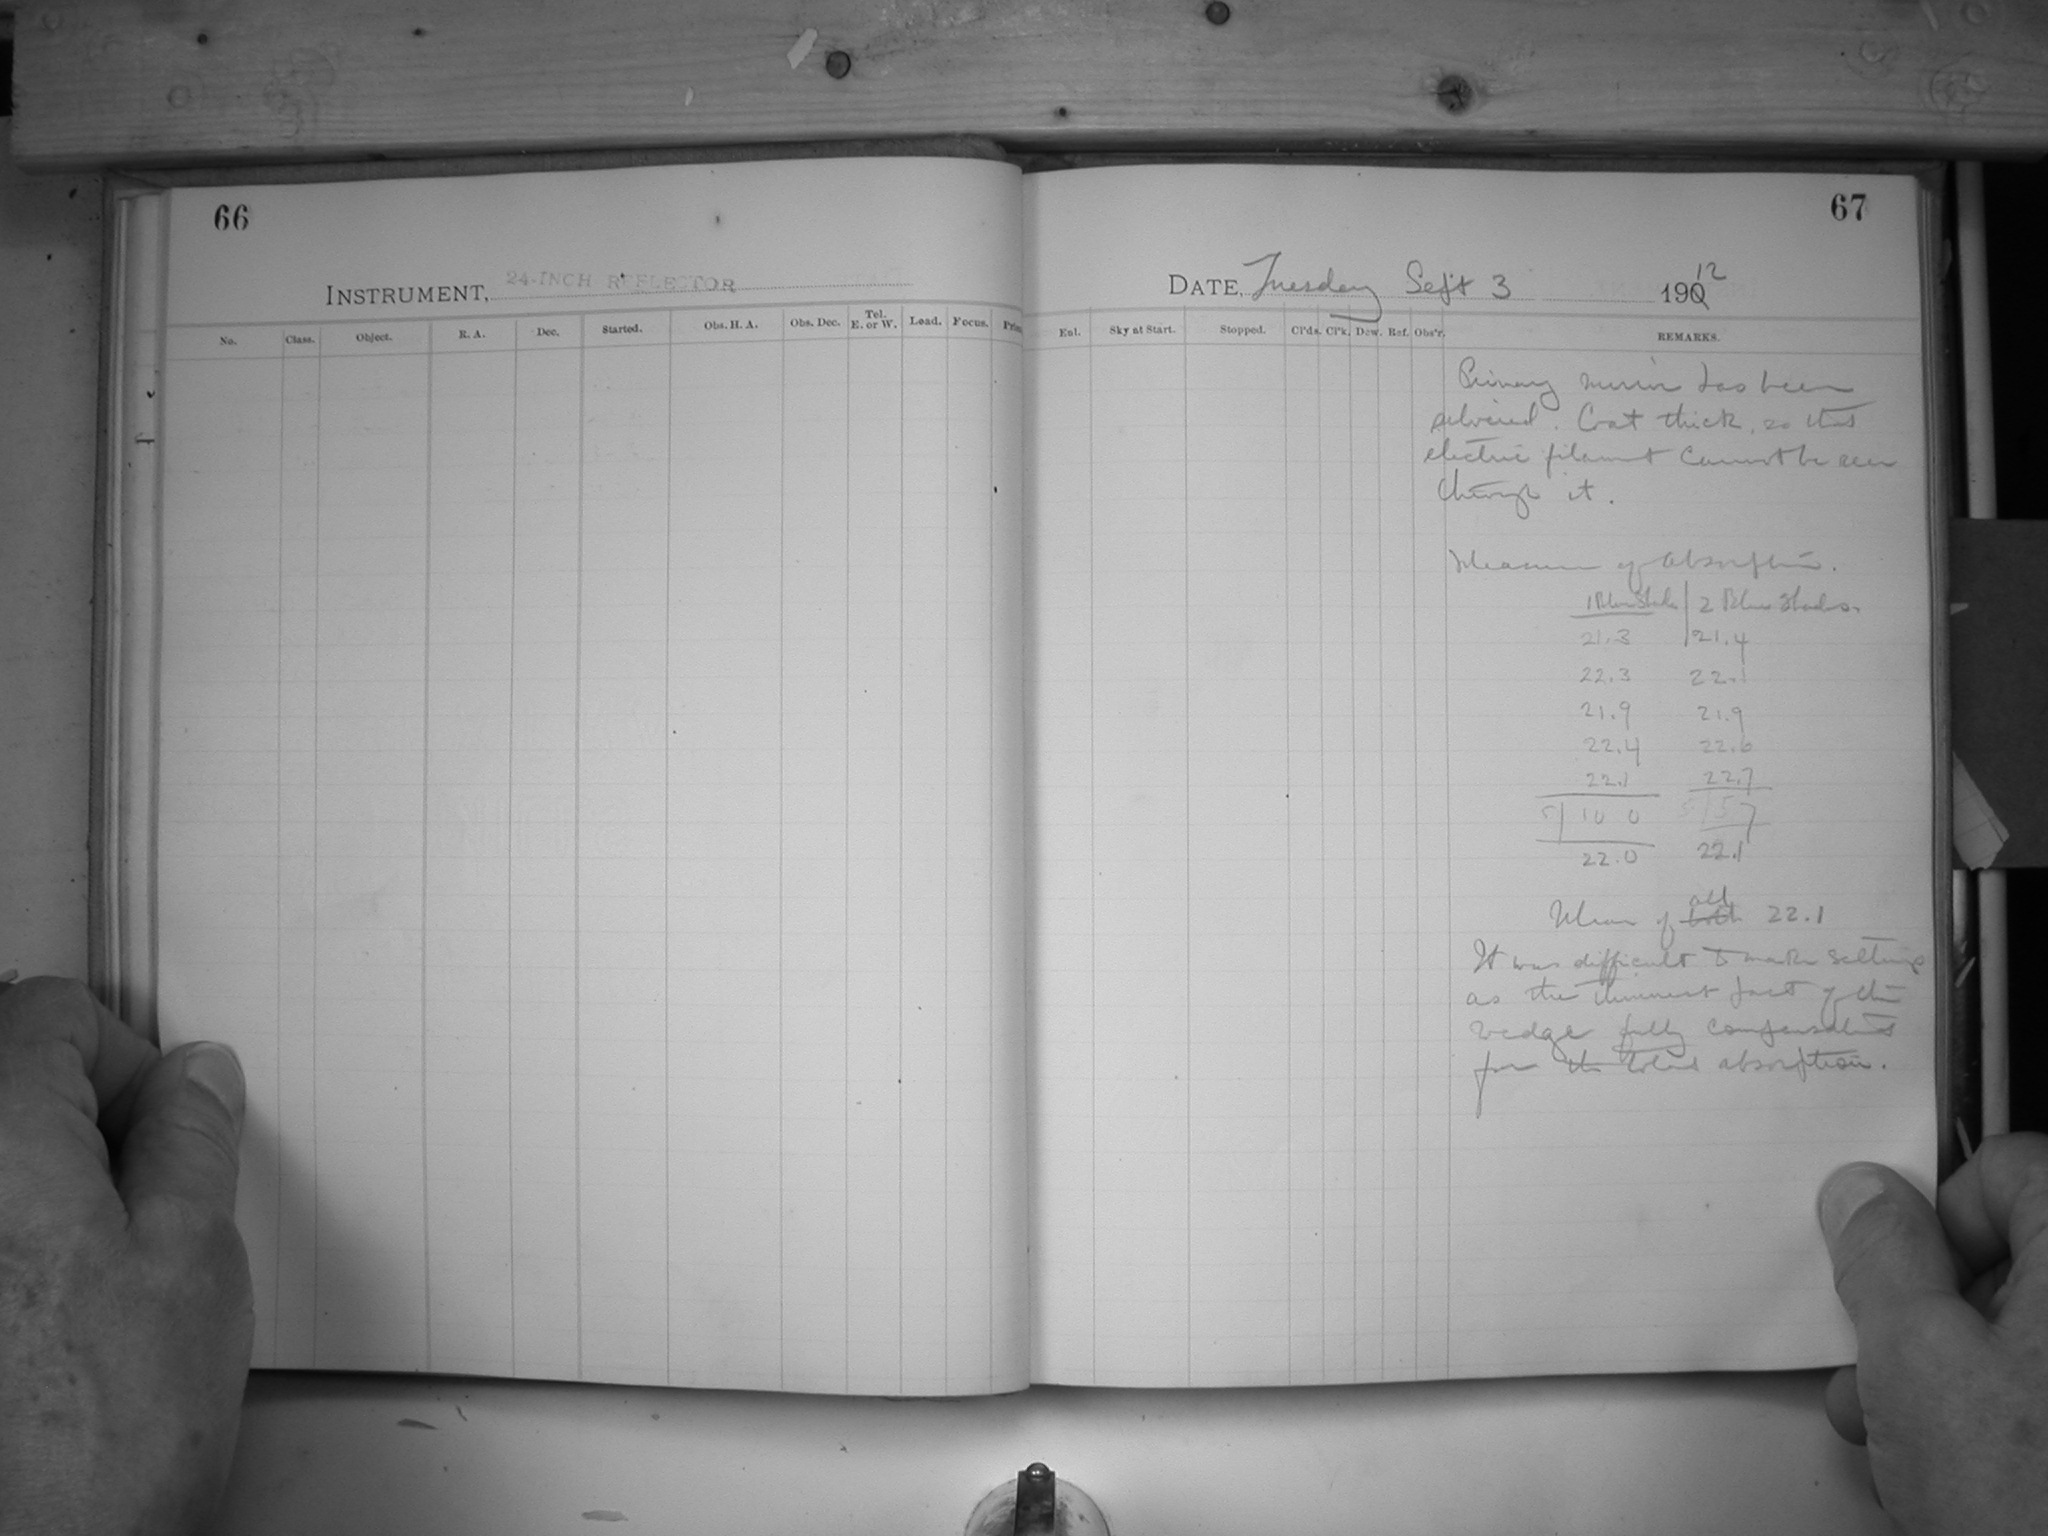 66
INSTRUMENT, 24-INCH REFLECTOR
No. Class. Object. R. A. Dec. Started. Obs. H. A. Obs. Dec. Tel. E. or W. Load. Focus. Prism
67
DATE, Tuesday Sept 3 190 12
Enl. Sky at Start. Stopped. Cl'ds. Cl'k. Dew. Ref. Obs'r. REMARKS.
Primary mirror has been
silvered. Coat thick, so that
electric filament cannot be seen
through it.
Measures of absorption.
1 Blue Shade 2 Blue Shades.
21.3 21.4
22.3 22.1
21.9 21.9
22.4 22.6
22.1 22.7
5 10 0 5 57
22.0 22.1
all
Mean of both 22.1
It was difficult to make settings
as the thinnest part of the
wedge fully compensates
for the total absorption.